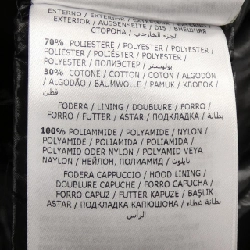 EXTERIOR / AUSSENSEITE / DIŞ
СТОРОНА /
70% POLIESTERE / POLYESTER /
POLYESTER / POLIÉSTER / POLYESTER /
POLYESTER / ПОЛИЭСТЕР /
30% COTONE / COTTON / COTON / ALGODÓN
/ ALGODÃO / BAUMWOLLE / PAMUK / ХЛОПОК /
FODERA / LINING / DOUBLURE / FORRO
/ FORRO / FUTTER / ASTAR / ПОДКЛАДКА / بطانة
100% POLIAMMIDE / POLYAMIDE / NYLON /
POLYAMIDE / POLIAMIDA / POLIAMIDA /
POLYAMID ODER NYLON / POLYAMID VEYA
NAYLON / НЕЙЛОН, ПОЛИАМИД / نايلون
FODERA CAPPUCCIO / HOOD LINING /
DOUBLURE CAPUCHE / FORRO CAPUCHA /
FORRO CAPUZ / FUTTER KAPUZE / BAŞLIK
ASTARI / ПОДКЛАДКА КАПЮШОНА / بطانة غطاء
الرأس